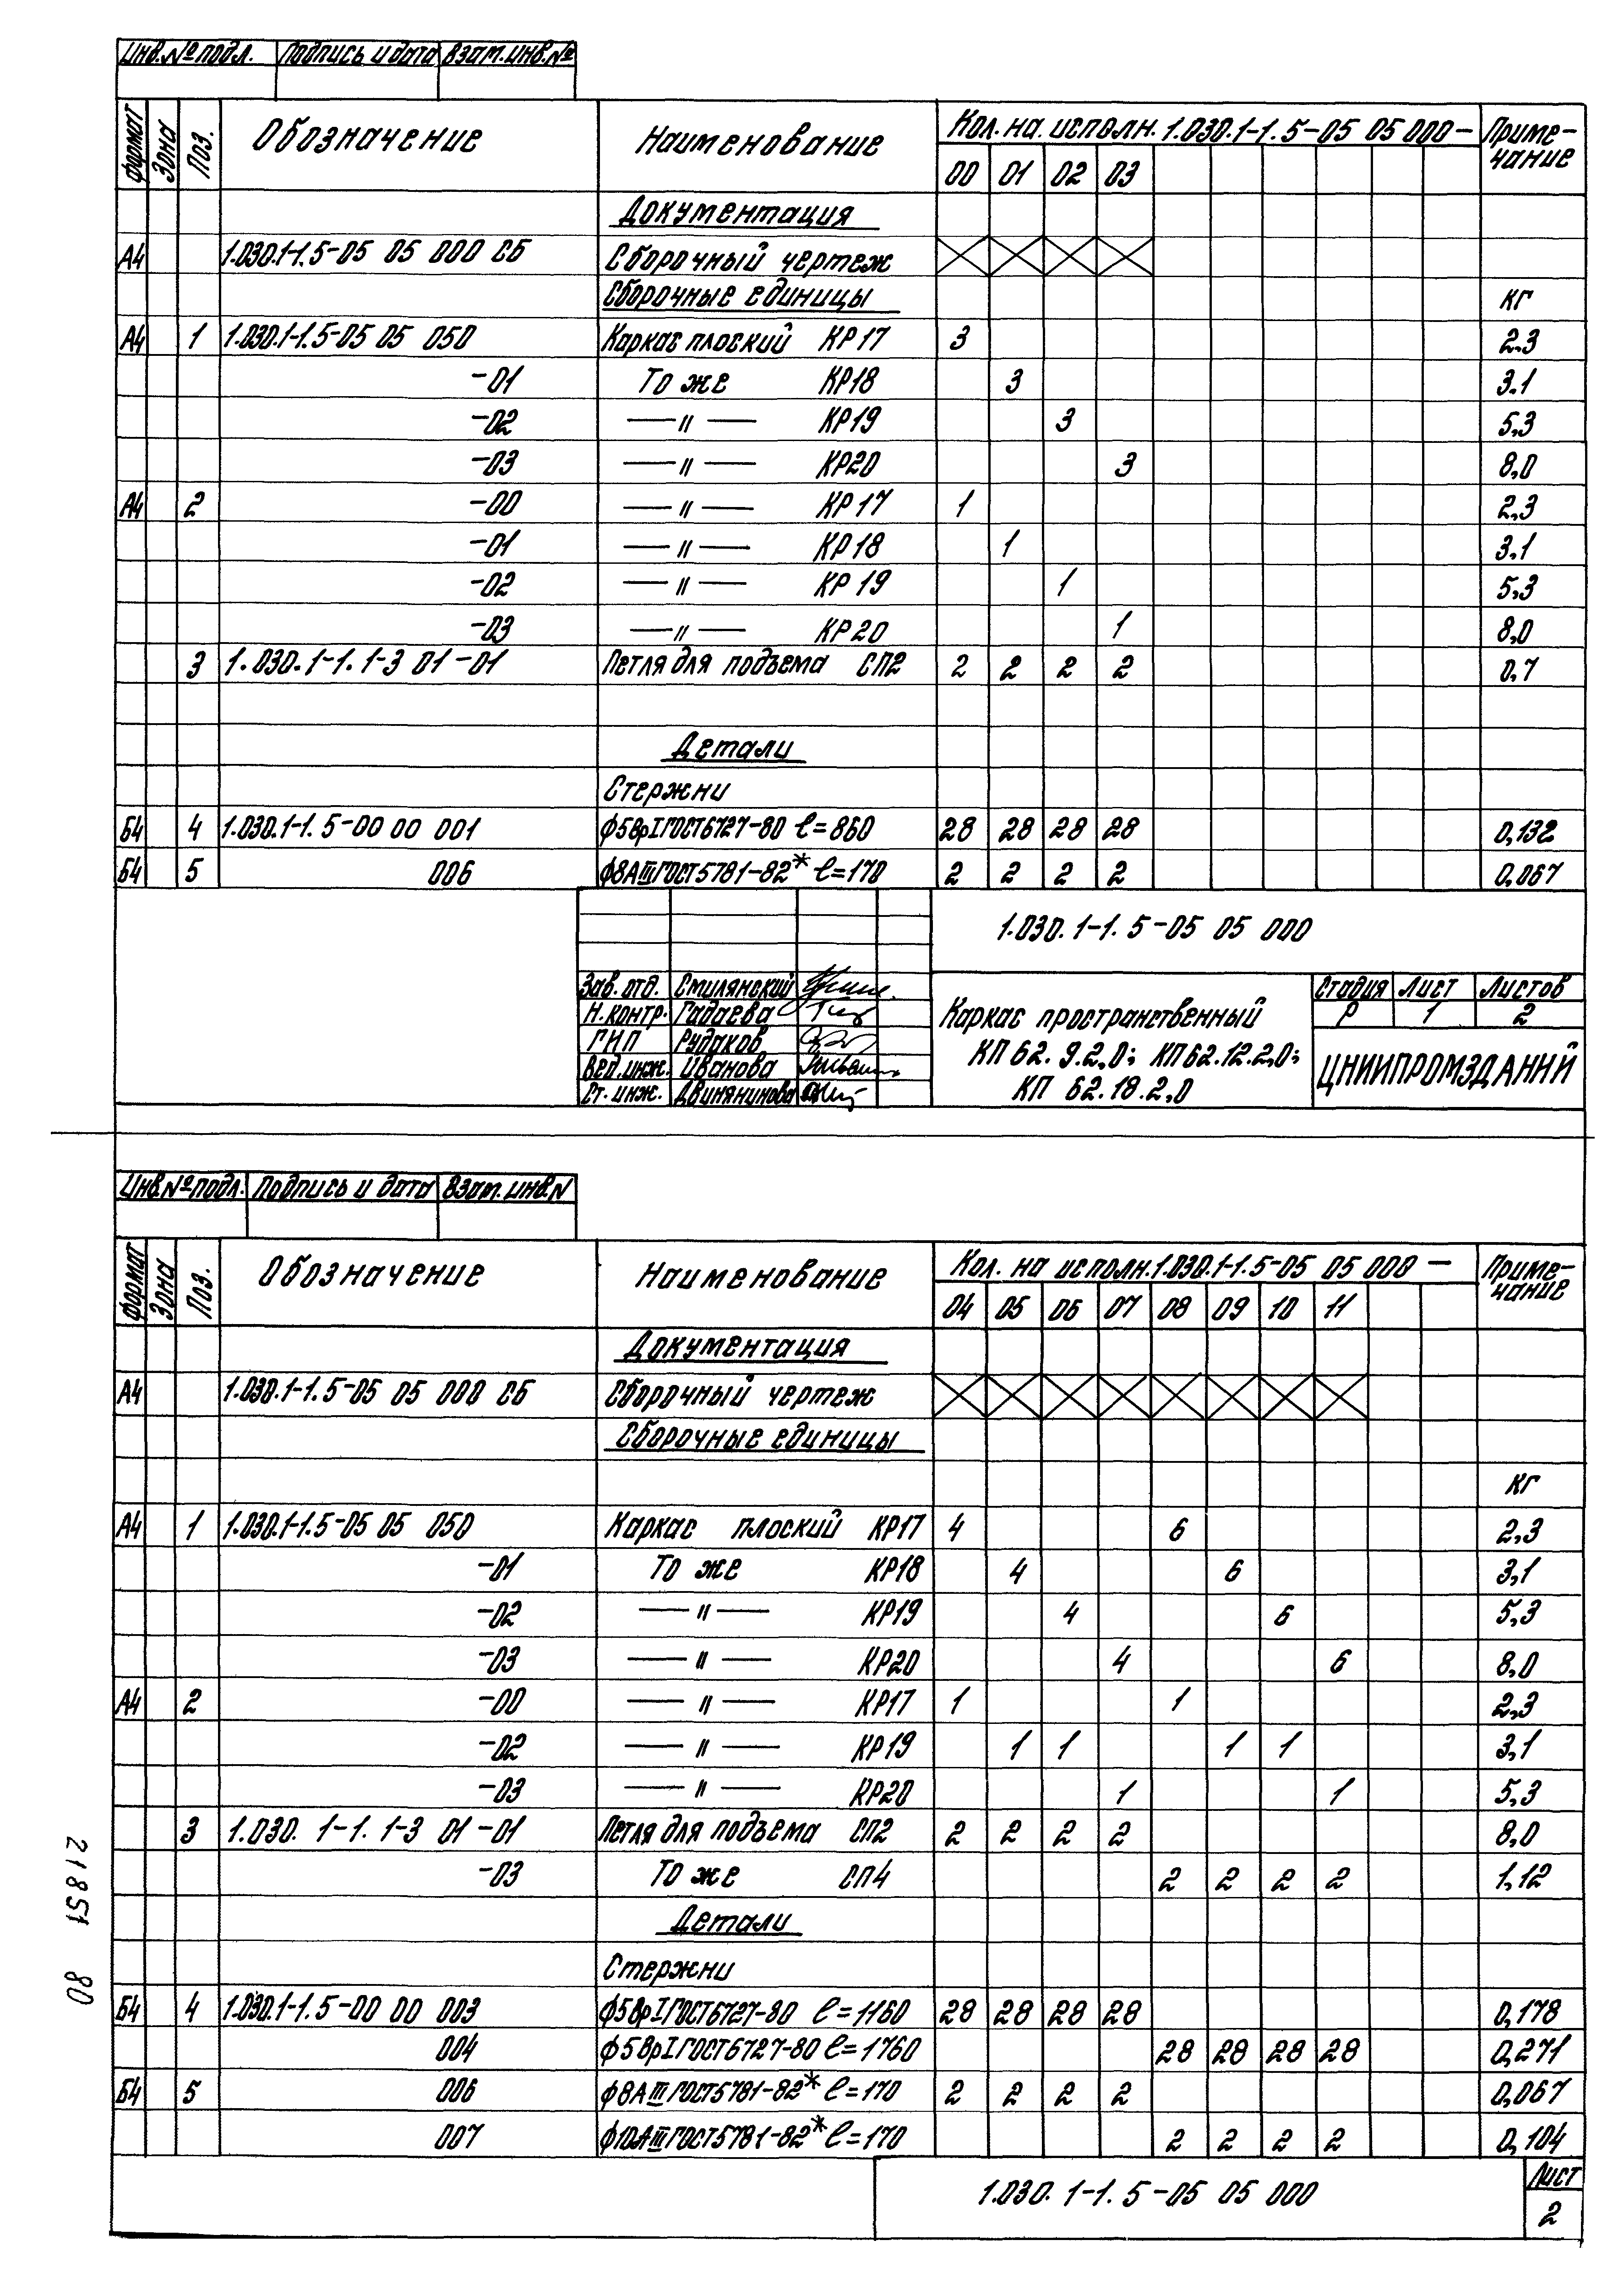 Инв.№подл. Подпись и дата Взам.инв.№
формат Зона Поз. Обозначение Наименование Кол. на исполн. 1.030.1-1.5-05 05 000- Приме-
чание
00 01 02 03
Документация
А4 1.030.1-1.5-05 05 000 СБ Сборочный чертеж
Сборочные единицы кг
А4 1 1.030.1-1.5-05 05 050 Каркас плоский КР17 3 2.3
-01 То же КР18 3 3.1
-02 — " — КР19 3 5,3
-03 — " — КР20 3 8,0
А4 2 -00 — " — КР17 1 2,3
-01 — " — КР18 1 3,1
-02 — " — КР19 1 5,3
-03 — " — КР20 1 8,0
3 1.030.1-1.1-3 01-01 Петля для подъема СП2 2 2 2 2 0,7
Детали
Стержни
Б4 4 1.030.1-1.5-00 00 001 ф5ВрI ГОСТ6727-80 ℓ=860 28 28 28 28 0,132
Б4 5 006 ф8АIII ГОСТ5781-82* ℓ=170 2 2 2 2 0,067
1.030.1-1.5-05 05 000
Зав. отд. Смилянский
Н.контр. Гадаева
ГИП Рудаков
Вед.инж. Иванова
Ст.инж. Двинянинова
Каркас пространственный
КП 62.9.2,0; КП62.12.2,0;
КП 62.18.2,0
Стадия Лист Листов
Р 1 2
ЦНИИПРОМЗДАНИЙ
Инв№подл. Подпись и дата Взам.инв.N
формат Зона Поз. Обозначение Наименование Кол. на исполн.1.030.1-1.5-05 05 000 — Приме-
чание
04 05 06 07 08 09 10 11
Документация
А4 1.030.1-1.5-05 05 000 СБ Сборочный чертеж
Сборочные единицы
кг
А4 1 1.030.1-1.5-05 05 050 Каркас плоский КР17 4 6 2,3
-01 То же КР18 4 6 3,1
-02 — " — КР19 4 6 5,3
-03 — " — КР20 4 6 8,0
А4 2 -00 — " — КР17 1 1 2,3
-02 — " — КР19 1 1 1 1 3,1
-03 — " — КР20 1 1 5,3
3 1.030.1-1.1-3 01-01 Петля для подъема СП2 2 2 2 2 8,0
-03 То же СП4 2 2 2 2 1,12
Детали
Стержни
Б4 4 1.030.1-1.5-00 00 003 ф5ВрI ГОСТ6727-80 ℓ=1160 28 28 28 28 0,178
004 ф5ВрI ГОСТ6727-80 ℓ=1760 28 28 28 28 0,271
Б4 5 006 ф8АIII ГОСТ5781-82* ℓ=170 2 2 2 2 0,067
007 ф10АIII ГОСТ5781-82* ℓ=170 2 2 2 2 0,104
1.030.1-1.5-05 05 000
Лист
2
21851 80